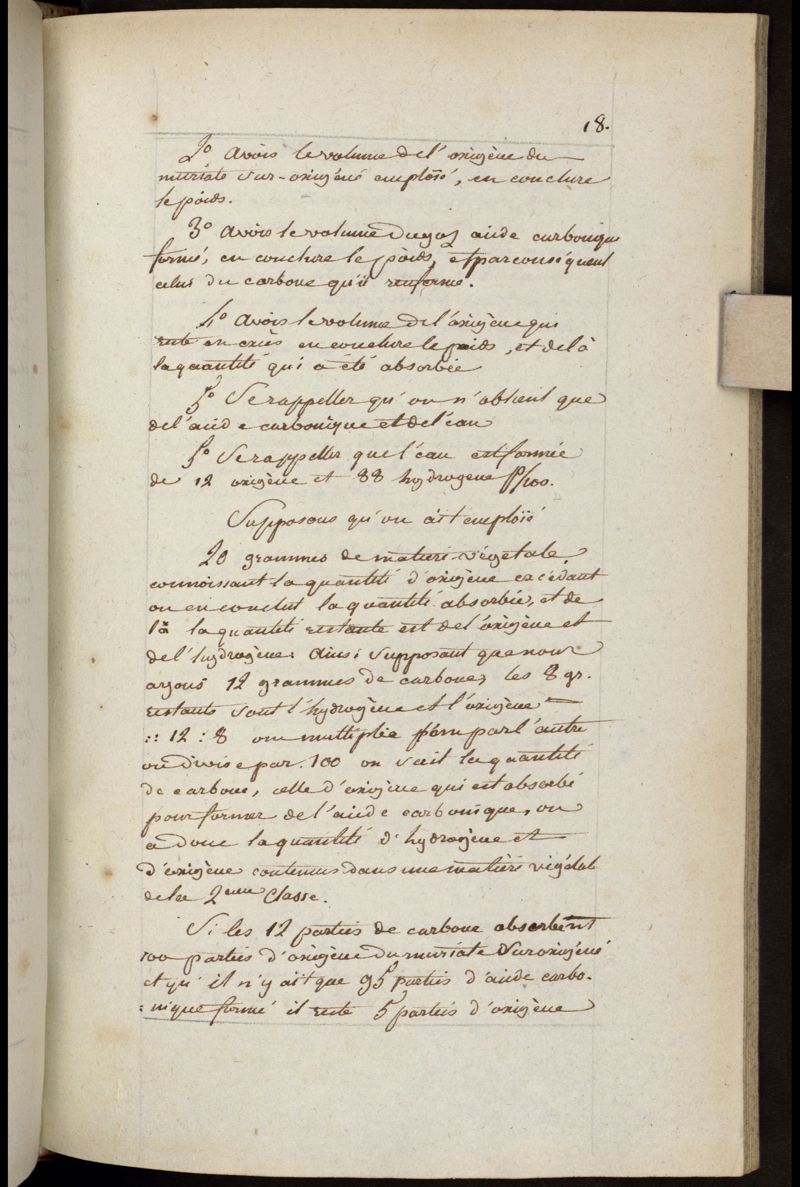 18.
2° Avoir le volume de l'oxigène du
muriate sur-oxigéné emploïé, en conclure
le poids.
3° Avoir le volume du gaz acide carbonique
formé, en conclure le poids, et par conséquent
celui du carbone qu'il renferme.
4° Avoir le volume de l'oxigène qui
reste en excès en conclure le poids, et de là
la quantité qui a été absorbée
5° Se rappeller qu'on n'obtient que
de l'acide carbonique et de l'eau
5° Se rappeller que l'eau est formée
de 12 oxigène et 88 hydrogene p/100.
Supposons qu'on ait emploïé
20 grammes de matiere végetale,
connoissant la quantité d'oxigène excédant
on en conclut la quantité absorbée, et de
là la quantité restante est de l'oxigène et
de l'hydrogène. Ainsi supposant que nous
ayons 12 grammes de carbone, les 8 gr.
restants sont l'hydrogène et l'oxigène
:: 12 : 8 on multiplie l'un par l'autre
on divise par 100 on sait la quantité
de carbone, celle d'oxigène qui est absorbé
pour former de l'acide carbonique, on
a donc la quantité d'hydrogène et
d'oxigène contenus dans une matière végétale
de la 2eme Classe.
Si les 12 parties de carbone absorbent
100 parties d'oxigène du muriate Suroxigéné
et qu'il n'y ait que 95 parties d'acide carbo-
:nique formé il reste 5 parties d'oxigène